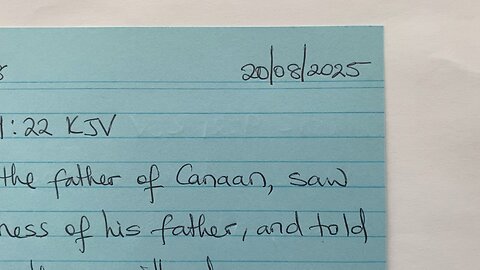 20/08/2025
:22 KJV
the father of Canaan, saw
ness of his father, and told